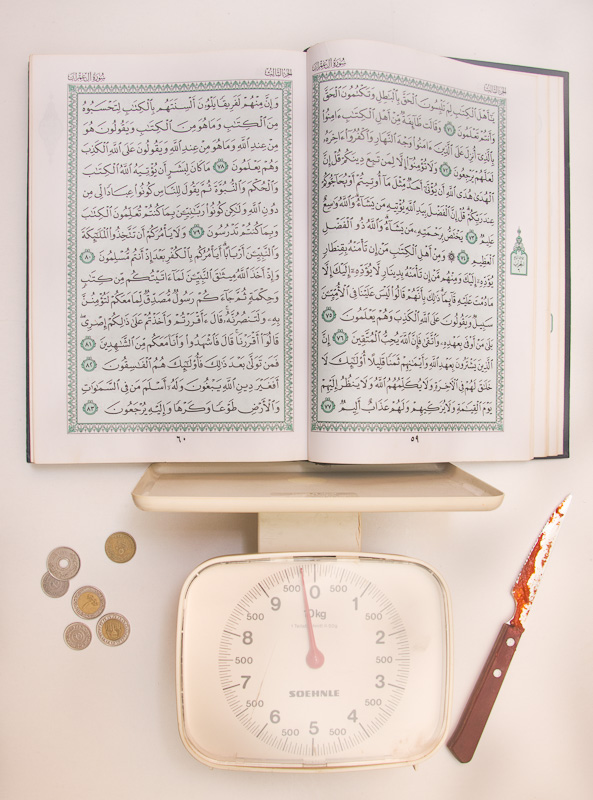 الجُزْءُ الثَّالِثُ سُورَةُ آلِ عِمْرَانَ
يَٰٓأَهْلَ ٱلْكِتَٰبِ لِمَ تَلْبِسُونَ ٱلْحَقَّ بِٱلْبَٰطِلِ وَتَكْتُمُونَ ٱلْحَقَّ
وَأَنتُمْ تَعْلَمُونَ ٧١ وَقَالَت طَّآئِفَةٌ مِّنْ أَهْلِ ٱلْكِتَٰبِ ءَامِنُوا۟
بِٱلَّذِىٓ أُنزِلَ عَلَى ٱلَّذِينَ ءَامَنُوا۟ وَجْهَ ٱلنَّهَارِ وَٱكْفُرُوٓا۟ ءَاخِرَهُۥ
لَعَلَّهُمْ يَرْجِعُونَ ٧٢ وَلَا تُؤْمِنُوٓا۟ إِلَّا لِمَن تَبِعَ دِينَكُمْ قُلْ إِنَّ
ٱلْهُدَىٰ هُدَى ٱللَّهِ أَن يُؤْتَىٰٓ أَحَدٌ مِّثْلَ مَآ أُوتِيتُمْ أَوْ يُحَآجُّوكُمْ
عِندَ رَبِّكُمْ قُلْ إِنَّ ٱلْفَضْلَ بِيَدِ ٱللَّهِ يُؤْتِيهِ مَن يَشَآءُ وَٱللَّهُ وَٰسِعٌ
عَلِيمٌ ٧٣ يَخْتَصُّ بِرَحْمَتِهِۦ مَن يَشَآءُ وَٱللَّهُ ذُو ٱلْفَضْلِ
ٱلْعَظِيمِ ٧٤ وَمِنْ أَهْلِ ٱلْكِتَٰبِ مَنْ إِن تَأْمَنْهُ بِقِنطَارٍ
يُؤَدِّهِۦٓ إِلَيْكَ وَمِنْهُم مَّنْ إِن تَأْمَنْهُ بِدِينَارٍ لَّا يُؤَدِّهِۦٓ إِلَيْكَ إِلَّا
مَا دُمْتَ عَلَيْهِ قَآئِمًا ذَٰلِكَ بِأَنَّهُمْ قَالُوا۟ لَيْسَ عَلَيْنَا فِى ٱلْأُمِّيِّـۧنَ
سَبِيلٌ وَيَقُولُونَ عَلَى ٱللَّهِ ٱلْكَذِبَ وَهُمْ يَعْلَمُونَ ٧٥
بَلَىٰ مَنْ أَوْفَىٰ بِعَهْدِهِۦ وَٱتَّقَىٰ فَإِنَّ ٱللَّهَ يُحِبُّ ٱلْمُتَّقِينَ ٧٦ إِنَّ
ٱلَّذِينَ يَشْتَرُونَ بِعَهْدِ ٱللَّهِ وَأَيْمَٰنِهِمْ ثَمَنًا قَلِيلًا أُو۟لَٰٓئِكَ لَا
خَلَٰقَ لَهُمْ فِى ٱلْءَاخِرَةِ وَلَا يُكَلِّمُهُمُ ٱللَّهُ وَلَا يَنظُرُ إِلَيْهِمْ
يَوْمَ ٱلْقِيَٰمَةِ وَلَا يُزَكِّيهِمْ وَلَهُمْ عَذَابٌ أَلِيمٌ ٧٧
٥٩
الجُزْءُ الثَّالِثُ سُورَةُ آلِ عِمْرَانَ
وَإِنَّ مِنْهُمْ لَفَرِيقًا يَلْوُۥنَ أَلْسِنَتَهُم بِٱلْكِتَٰبِ لِتَحْسَبُوهُ
مِنَ ٱلْكِتَٰبِ وَمَا هُوَ مِنَ ٱلْكِتَٰبِ وَيَقُولُونَ هُوَ
مِنْ عِندِ ٱللَّهِ وَمَا هُوَ مِنْ عِندِ ٱللَّهِ وَيَقُولُونَ عَلَى ٱللَّهِ ٱلْكَذِبَ
وَهُمْ يَعْلَمُونَ ٧٨ مَا كَانَ لِبَشَرٍ أَن يُؤْتِيَهُ ٱللَّهُ ٱلْكِتَٰبَ
وَٱلْحُكْمَ وَٱلنُّبُوَّةَ ثُمَّ يَقُولَ لِلنَّاسِ كُونُوا۟ عِبَادًا لِّى مِن
دُونِ ٱللَّهِ وَلَٰكِن كُونُوا۟ رَبَّٰنِيِّـۧنَ بِمَا كُنتُمْ تُعَلِّمُونَ ٱلْكِتَٰبَ
وَبِمَا كُنتُمْ تَدْرُسُونَ ٧٩ وَلَا يَأْمُرَكُمْ أَن تَتَّخِذُوا۟ ٱلْمَلَٰٓئِكَةَ
وَٱلنَّبِيِّـۧنَ أَرْبَابًا أَيَأْمُرُكُم بِٱلْكُفْرِ بَعْدَ إِذْ أَنتُم مُّسْلِمُونَ ٨٠
وَإِذْ أَخَذَ ٱللَّهُ مِيثَٰقَ ٱلنَّبِيِّـۧنَ لَمَآ ءَاتَيْتُكُم مِّن كِتَٰبٍ
وَحِكْمَةٍ ثُمَّ جَآءَكُمْ رَسُولٌ مُّصَدِّقٌ لِّمَا مَعَكُمْ لَتُؤْمِنُنَّ
بِهِۦ وَلَتَنصُرُنَّهُۥ قَالَ ءَأَقْرَرْتُمْ وَأَخَذْتُمْ عَلَىٰ ذَٰلِكُمْ إِصْرِى
قَالُوٓا۟ أَقْرَرْنَا قَالَ فَٱشْهَدُوا۟ وَأَنَا۠ مَعَكُم مِّنَ ٱلشَّٰهِدِينَ ٨١
فَمَن تَوَلَّىٰ بَعْدَ ذَٰلِكَ فَأُو۟لَٰٓئِكَ هُمُ ٱلْفَٰسِقُونَ ٨٢
أَفَغَيْرَ دِينِ ٱللَّهِ يَبْغُونَ وَلَهُۥٓ أَسْلَمَ مَن فِى ٱلسَّمَٰوَٰتِ
وَٱلْأَرْضِ طَوْعًا وَكَرْهًا وَإِلَيْهِ يُرْجَعُونَ ٨٣
٦٠
500 0 500
9 10kg 1
500 500
8 2
500 500
7 3
SOEHNLE
500 500
6 4
500 5 500